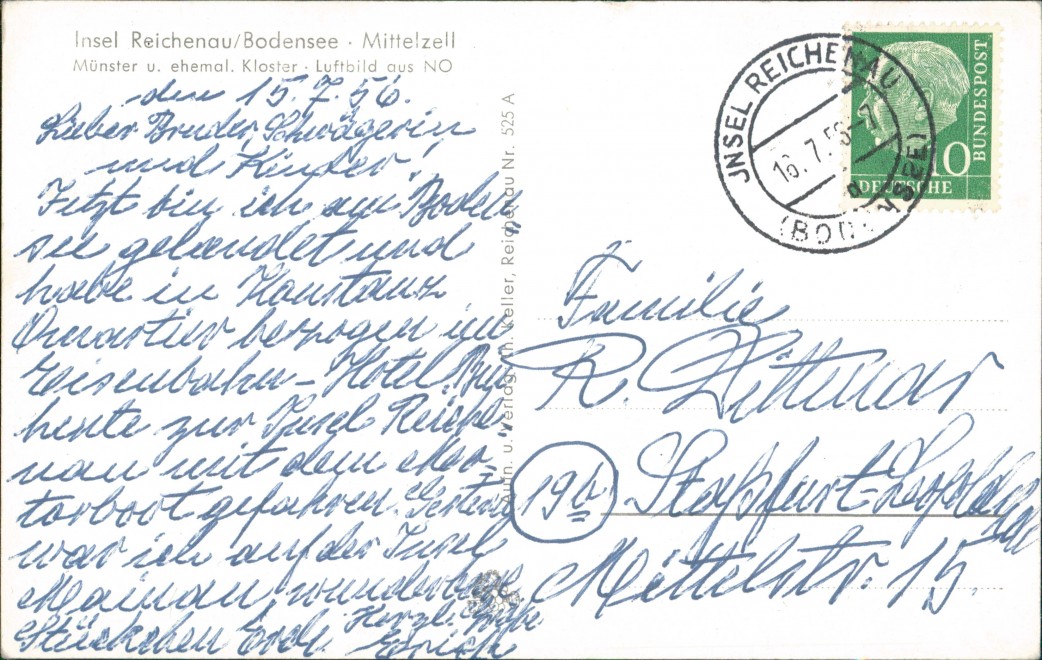 Insel Reichenau/Bodensee · Mittelzell
Münster u. ehemal. Kloster · Luftbild aus NO
den 15.7.56.
Lieber Bruder, Schwägerin
und Kinder!
Jetzt bin ich am Boden
see gelandet und
habe in Konstanz
Quartier bezogen im
Eisenbahn-Hotel. Bin
heute zur Insel Reiche
nau mit dem Mo-
torboot gefahren. Gestern
war ich auf der Insel
Mainau wunderbar
Stückchen Erde. Herzl. Grüße
Erich
Aufn. u. Verlag Th. Keller, Reichenau Nr. 525 A
JNSEL REICHENAU
16.7.56-7
(BODENSEE)
BUNDESPOST
10
DEUTSCHE
Familie
R. Dittmar
19b Staßfurt-Leopoldshall
Mittelstr. 15